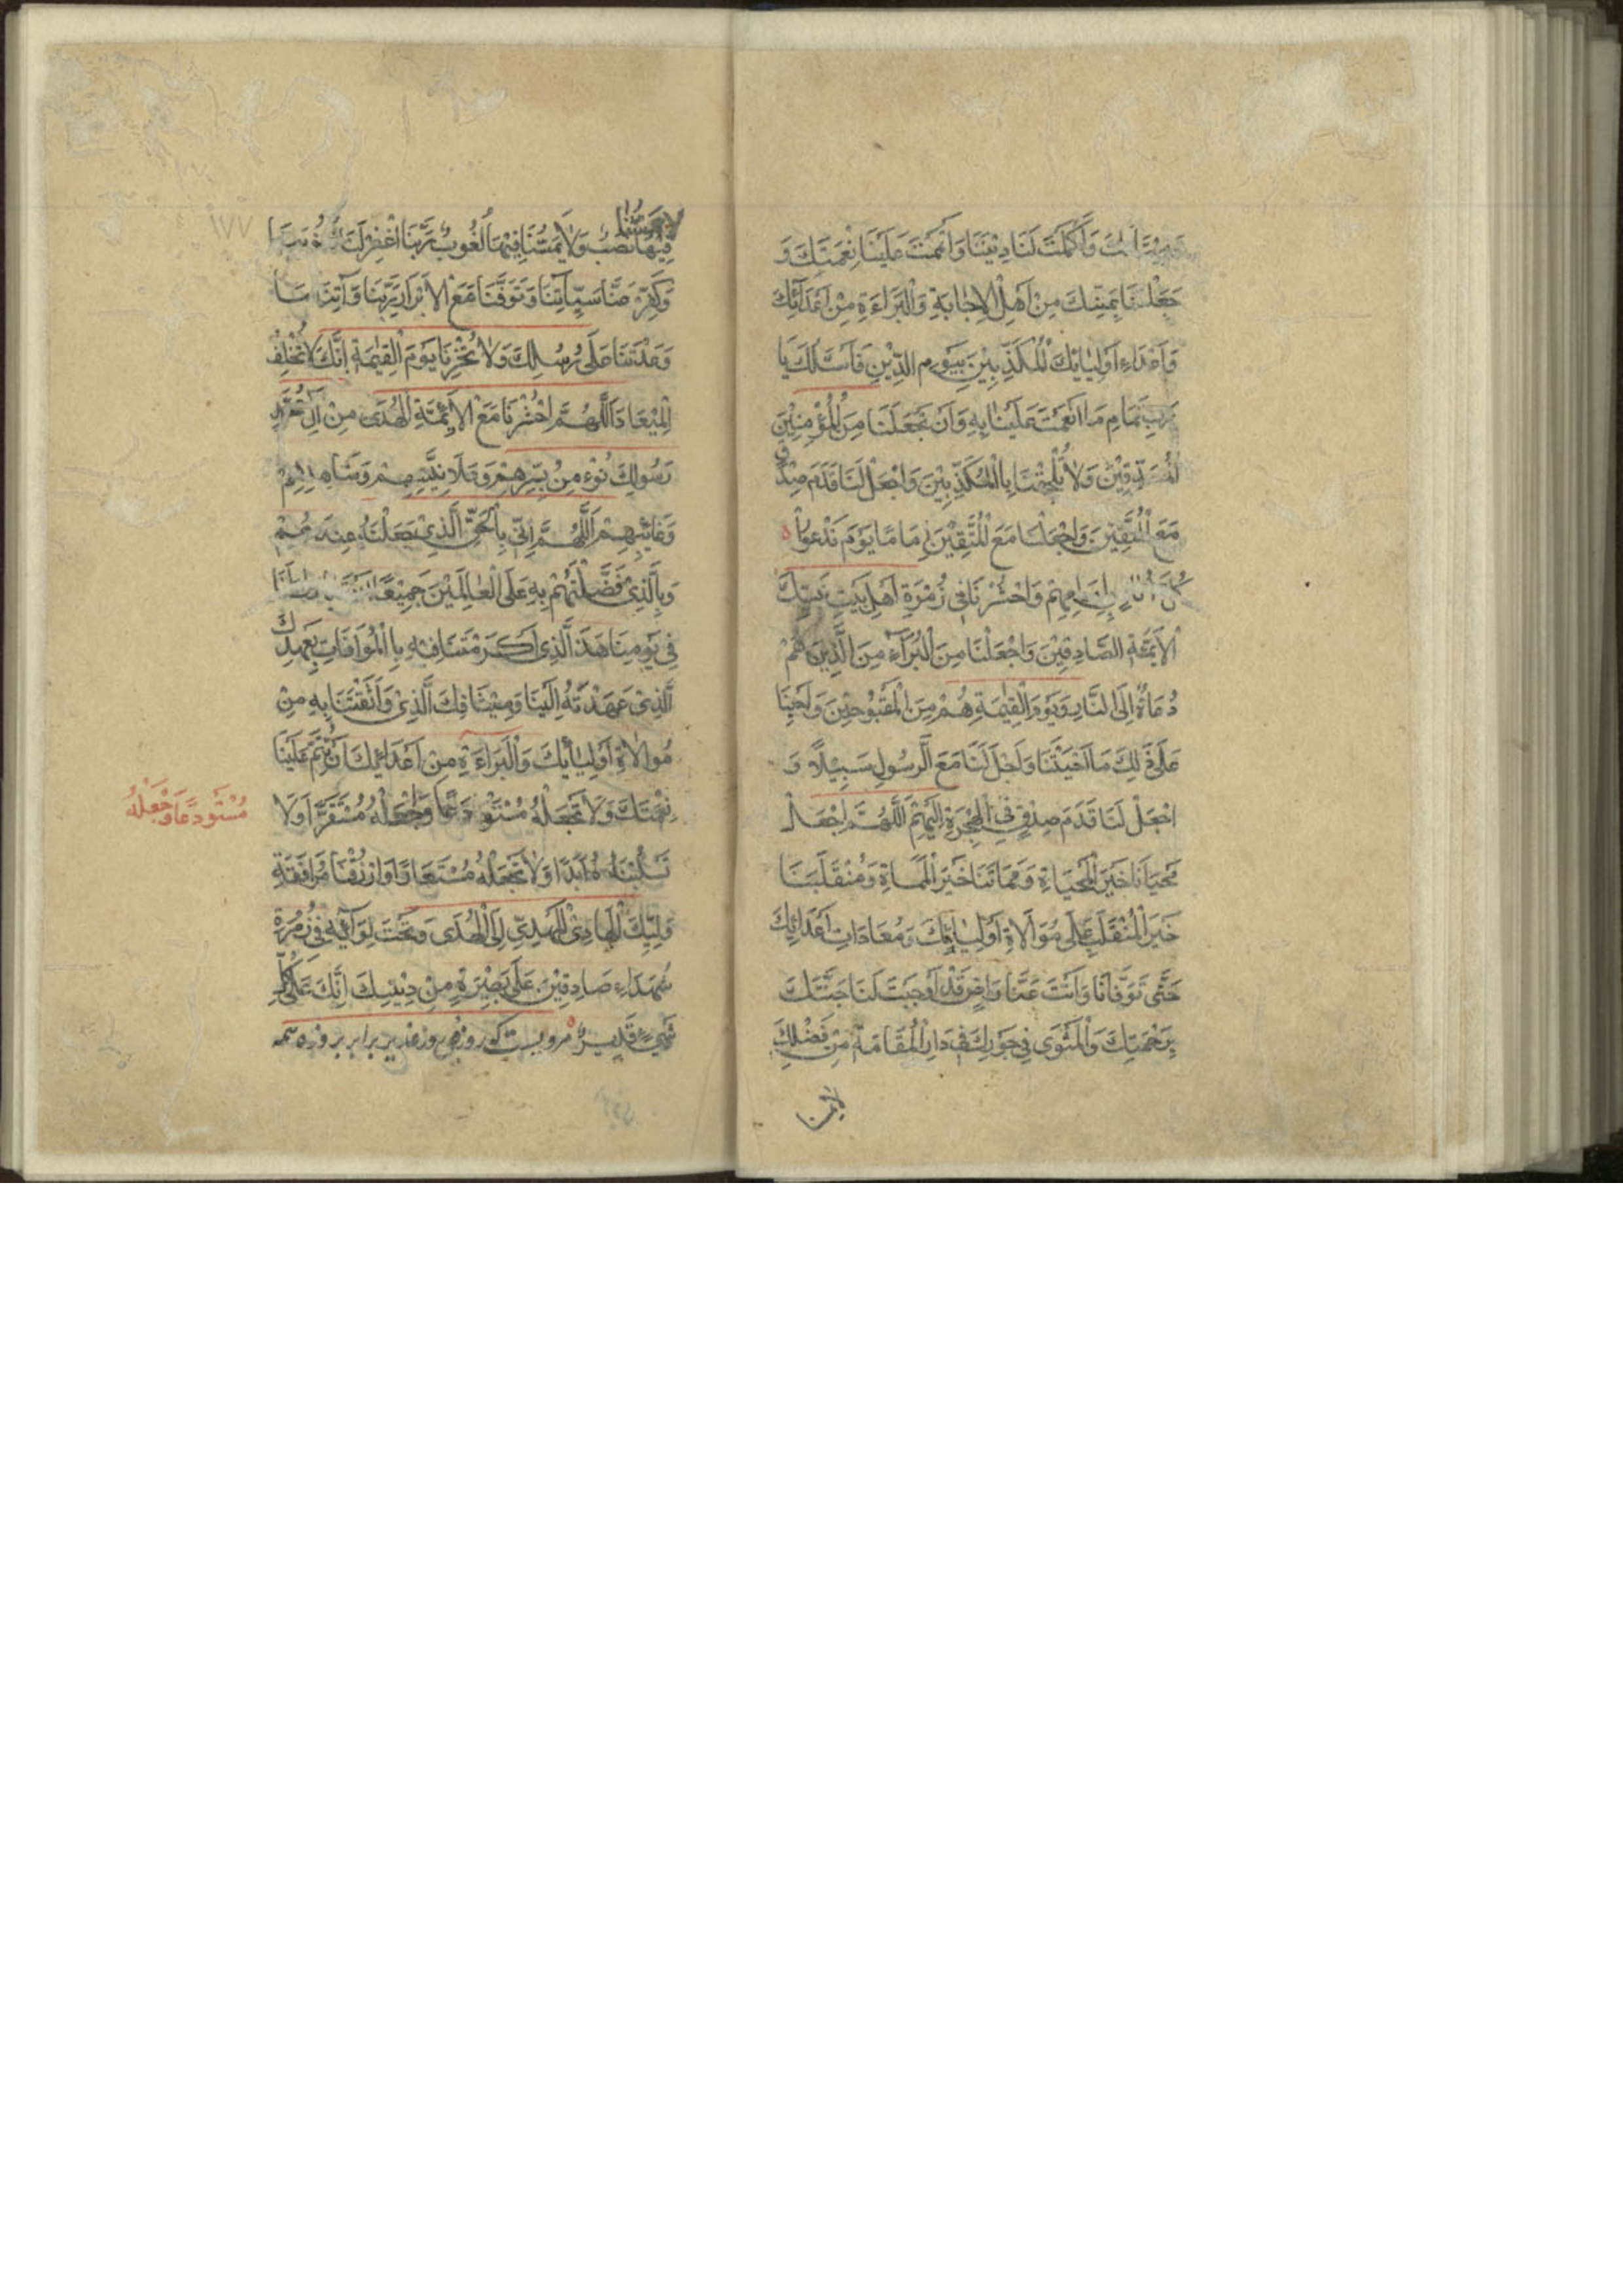 وَأَكْمَلْتَ لَنَا دِيْنَنَا وَأَتْمَمْتَ عَلَيْنَا نِعْمَتَكَ وَ
جَعَلْتَنَا بِمَنِّكَ مِنْ أَهْلِ الْإِجَابَةِ وَالْبَرَاءَةِ مِنْ أَعْدَائِكَ
وَأَعْدَاءِ أَوْلِيَائِكَ الْمُكَذِّبِيْنَ بِيَوْمِ الدِّيْنِ فَأَسْئَلُكَ يَا
رَبِّ تَمَامَ مَا أَنْعَمْتَ عَلَيْنَا بِهِ وَأَنْ تَجْعَلَنَا مِنَ الْمُؤْمِنِيْنَ
وَلَا تُلْحِقْنَا بِالْمُكَذِّبِيْنَ وَاجْعَلْ لَنَا قَدَمَ صِدْقٍ
مَعَ الْمُتَّقِيْنَ وَاجْعَلْنَا مَعَ الْمُتَّقِيْنَ إِمَامًا يَوْمَ تَدْعُوا
بِإِمَامِهِمْ وَاحْشُرْنَا فِي زُمْرَةِ أَهْلِ بَيْتِ نَبِيِّكَ
الْأَئِمَّةِ الصَّادِقِيْنَ وَاجْعَلْنَا مِنَ الْبُرَآءِ مِنَ الَّذِيْنَ هُمْ
دُعَاةٌ إِلَى النَّارِ وَيَوْمَ الْقِيٰمَةِ هُمْ مِنَ الْمَقْبُوْحِيْنَ وَأَحْيِنَا
عَلَى ذَلِكَ مَا أَحْيَيْتَنَا وَاجْعَلْ لَنَا مَعَ الرَّسُولِ سَبِيْلًا وَ
اجْعَلْ لَنَا قَدَمَ صِدْقٍ فِي الْهِجْرَةِ إِلَيْهِمْ اَللّٰهُمَّ اجْعَلْ
مَحْيَانَا خَيْرَ الْمَحْيَاةِ وَمَمَاتَنَا خَيْرَ الْمَمَاةِ وَمُنْقَلَبَنَا
خَيْرَ الْمُنْقَلَبِ عَلَى مُوَالَاةِ أَوْلِيَائِكَ وَمُعَادَاتِ أَعْدَائِكَ
حَتَّى تَوَفَّانَا وَأَنْتَ عَنَّا رَاضٍ قَدْ أَوْجَبْتَ لَنَا جَنَّتَكَ
بِرَحْمَتِكَ وَالْمَثْوَى فِي جَوَارِكَ فِي دَارِ الْمُقَامَةِ مِنْ فَضْلِكَ
لَا يَمَسُّنَا
فِيْهَا نَصَبٌ وَلَا يَمَسُّنَا فِيْهَا لُغُوبٌ رَبَّنَا اغْفِرْ لَنَا ذُنُوبَنَا
وَكَفِّرْ عَنَّا سَيِّاٰتِنَا وَتَوَفَّنَا مَعَ الْأَبْرَارِ رَبَّنَا وَآتِنَا مَا
وَعَدْتَنَا عَلَى رُسُلِكَ وَلَا تُخْزِنَا يَوْمَ الْقِيٰمَةِ إِنَّكَ لَا تُخْلِفُ
الْمِيْعَادَ اَللّٰهُمَّ احْشُرْنَا مَعَ الْأَئِمَّةِ الْهُدَى مِنْ اٰلِ مُحَمَّدٍ
رَسُولِكَ نُؤْمِنُ بِسِرِّهِمْ وَعَلَانِيَتِهِمْ وَشَاهِدِهِمْ
وَغَائِبِهِمْ اَللّٰهُمَّ إِنِّي بِالْحَقِّ الَّذِيْ جَعَلْتَهُ عِنْدَهُمْ
وَبِالَّذِيْ فَضَّلْتَهُمْ بِهِ عَلَى الْعَالَمِيْنَ جَمِيْعًا
فِي يَوْمِنَا هَذَا الَّذِي أَكْرَمْتَنَا فِيْهِ بِالْمُوَافَاتِ بِعَهْدِكَ
الَّذِيْ عَهِدْتَهُ إِلَيْنَا وَمِيْثَاقِكَ الَّذِيْ وَاثَقْتَنَا بِهِ مِنْ
مُوَالَاةِ أَوْلِيَائِكَ وَالْبَرَاءَةِ مِنْ أَعْدَائِكَ أَنْ تُتِمَّ عَلَيْنَا
نِعْمَتَكَ وَلَا تَجْعَلْهُ مُسْتَوْدَعًا وَاجْعَلْهُ مُسْتَقَرًّا وَلَا
مُسْتَوْدَعًا وَاجْعَلْهُ
تَسْلُبْنَاهُ أَبَدًا وَلَا تَجْعَلْهُ مُسْتَعَارًا وَارْزُقْنَا مُرَافَقَةَ
وَلِيِّكَ الْهَادِيْ الْمَهْدِيِّ إِلَى الْهُدَى وَتَحْتَ لِوَآئِهِ فِي زُمْرَةِ
شُهَدَاءَ صَادِقِيْنَ عَلَى بَصِيْرَةٍ مِنْ دِيْنِكَ إِنَّكَ عَلَى كُلِّ
شَيْءٍ قَدِيْرٌ